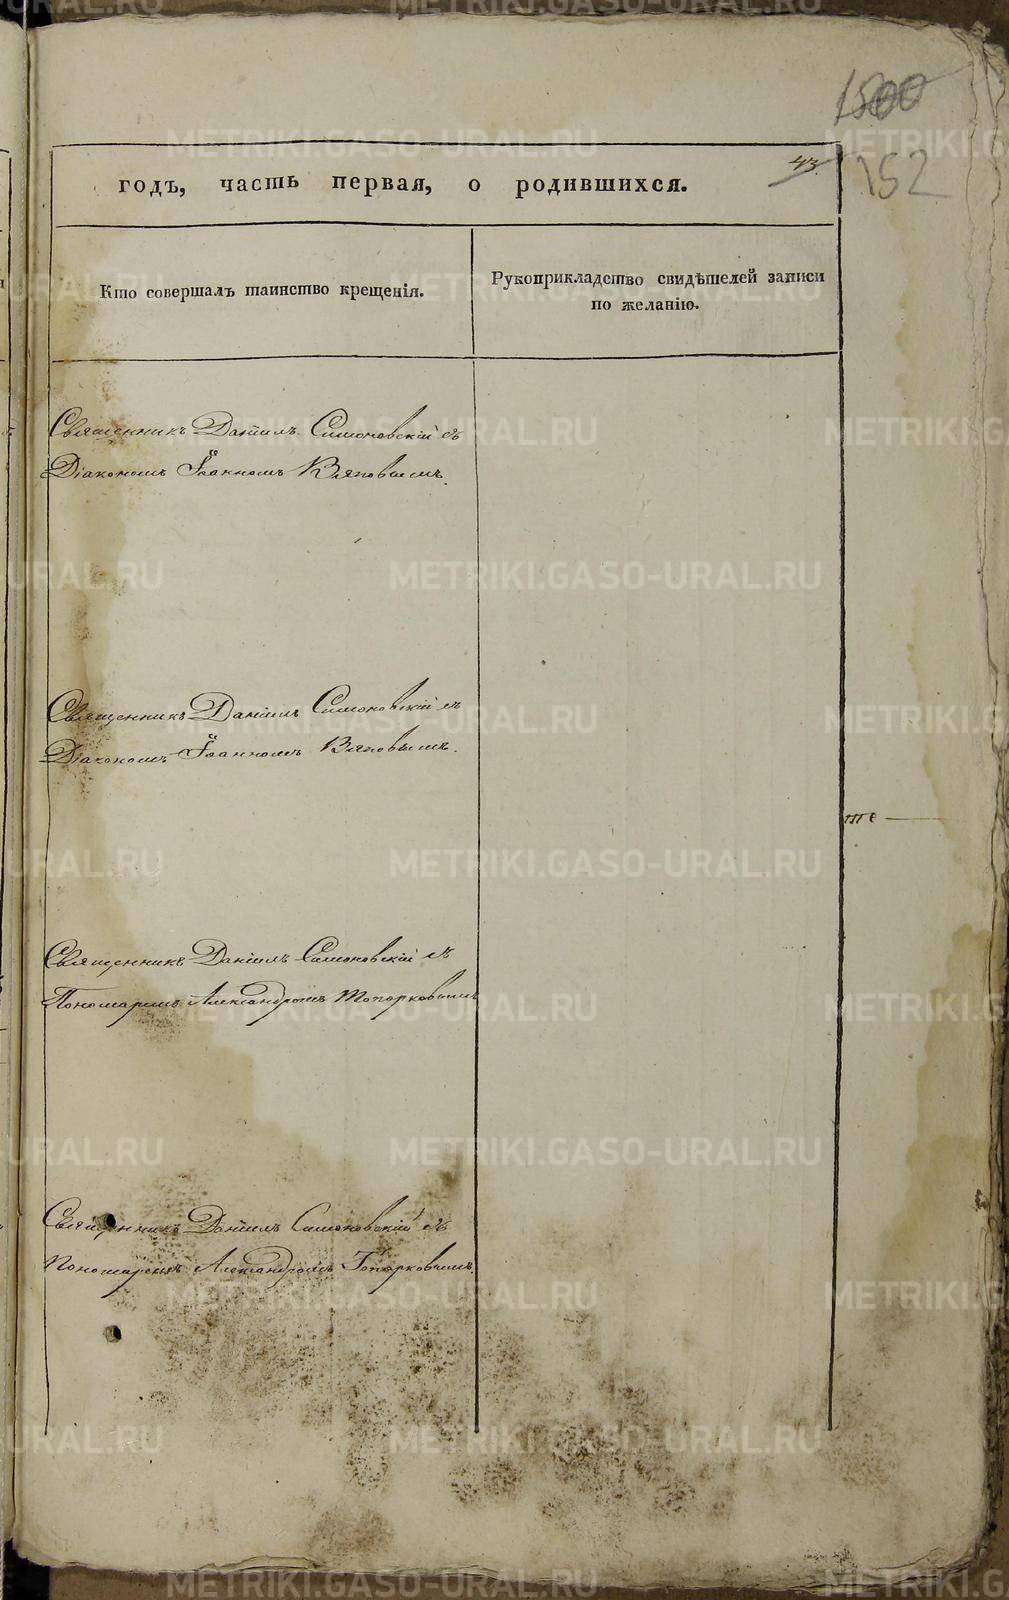 152
43.
годъ, часть первая, о родившихся.
Кто совершалъ таинство крещенія.
Рукоприкладство свидѣтелей записи
по желанію.
Священникъ Даніилъ Симоновскій съ
Діакономъ Іоанномъ Вяповымъ.
Священникъ Даніилъ Симоновскій съ
Діакономъ Іоанномъ Вяповымъ.
Священникъ Даніилъ Симоновскій съ
Пономаремъ Александромъ Топорковымъ
Священникъ Даніилъ Симоновскій съ
Пономаремъ Александромъ Топорковымъ.
METRIKI.GASO-URAL.RU